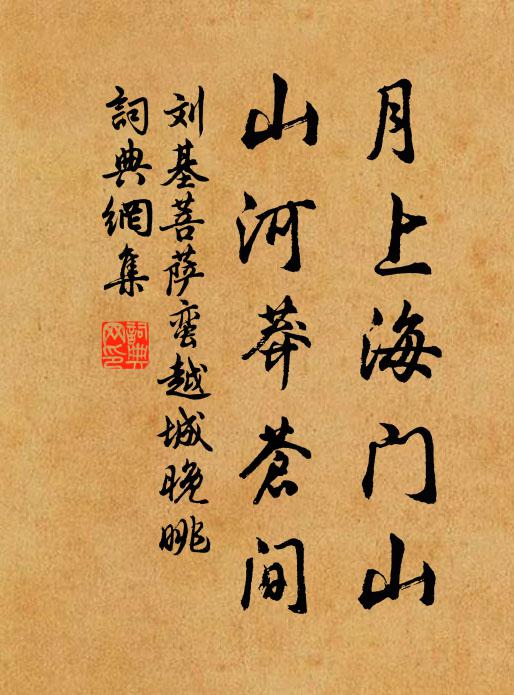 月上海门山
山河莽苍间
刘基菩萨蛮越城晚眺
词典網集
詞典
网印